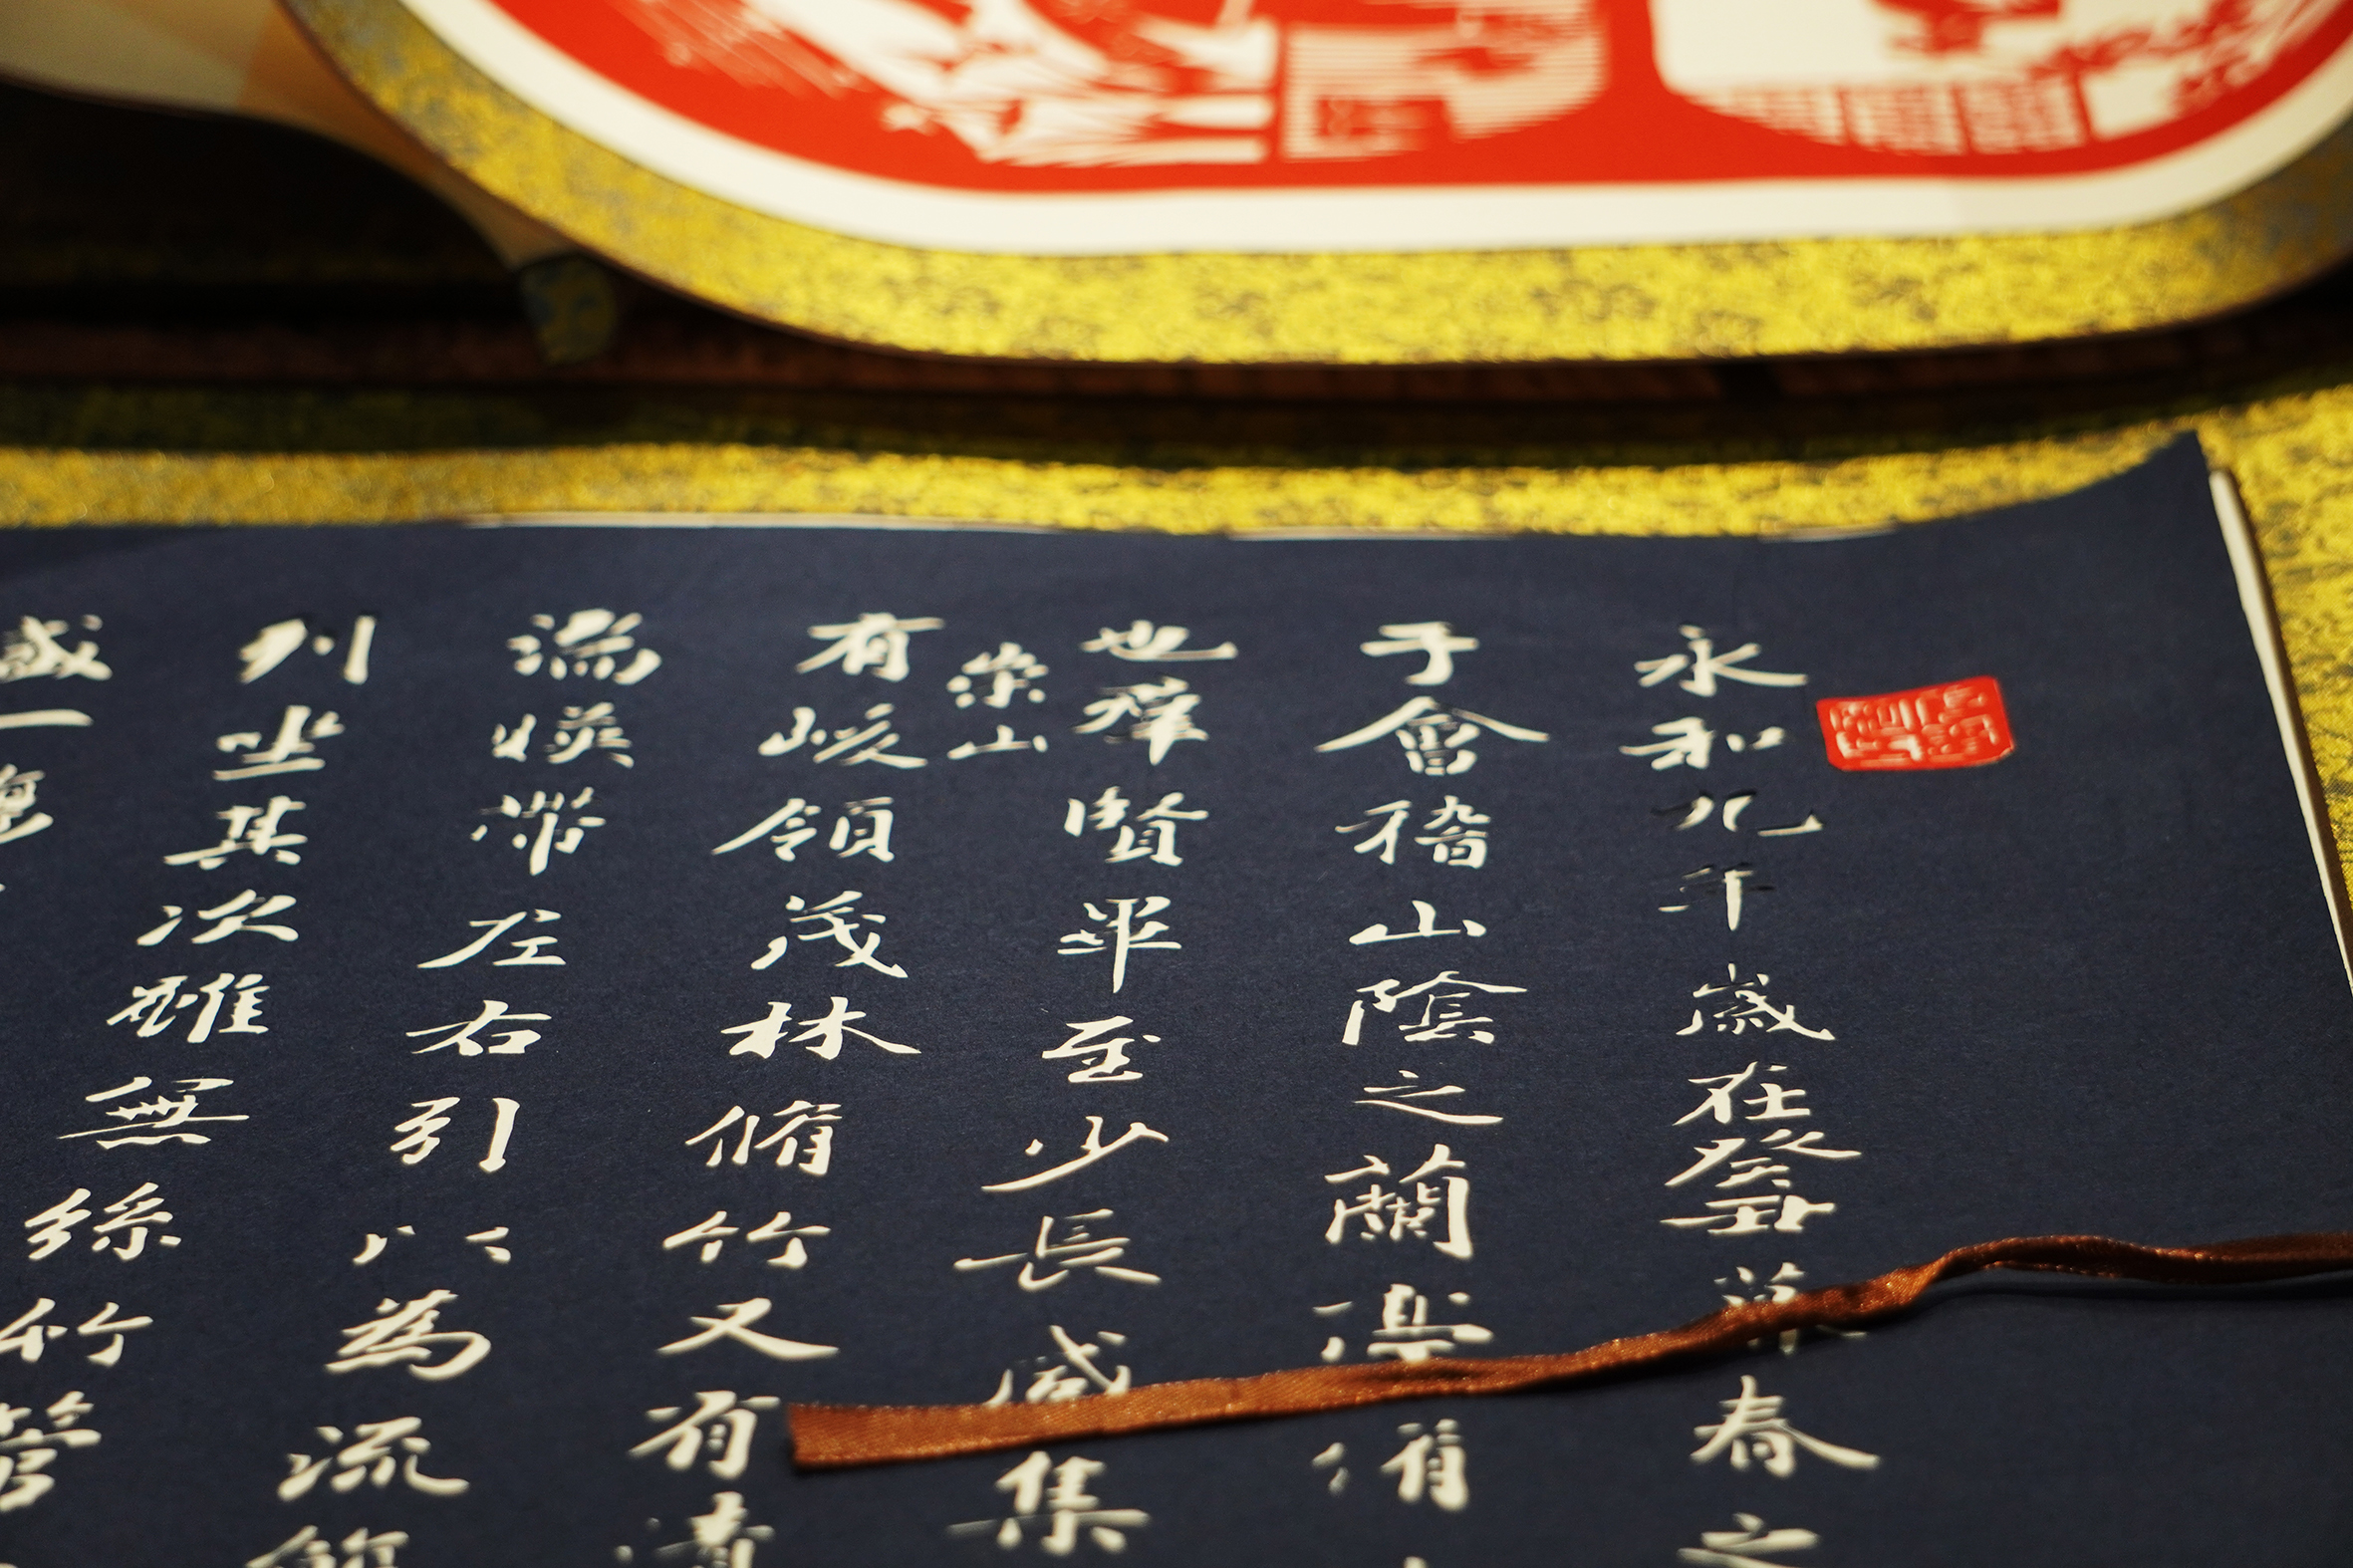 永和九年歲在癸丑暮春之
于會稽山陰之蘭亭脩
也群賢畢至少長咸集
崇山
有峻領茂林脩竹又有清
湍暎帶左右引以為流觴
列坐其次雖無絲竹管
盛一觴